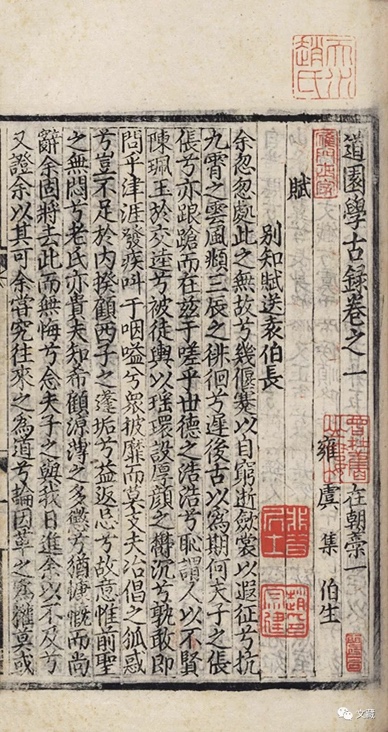 道園學古録卷之一
在朝稾一
雍 虞 集 伯生
賦
別知賦送袁伯長
余忽忽處此之無故兮幾偃蹇以自窮逝斂裳以遐征兮抗
九霄之雲風頫三辰之徘徊兮遲後古以爲期何夫子之張
張兮亦踉蹡而在兹干嗟乎世德之浩浩兮恥謂人以不賢
陳珮玉於交逵兮被徒輿以瑶瓌設厚顔之欝沉兮孰敢即
問乎津涯發疾呌于咽嗌兮衆披靡而莫支夫冶倡之狐惑
兮豈不足於内揆顧西子之蓬垢兮益返忌兮故意惟前聖
之無悶兮老氏亦貴夫知希顧源薄之多兮猶慷慨而尚
辭余固將去此而無悔兮念夫子之與我日進余以不及兮
又證余以其可余嘗究往來之爲道兮論因革之爲權莫或
天水趙氏
非昔居士
趙印宗建
文藏